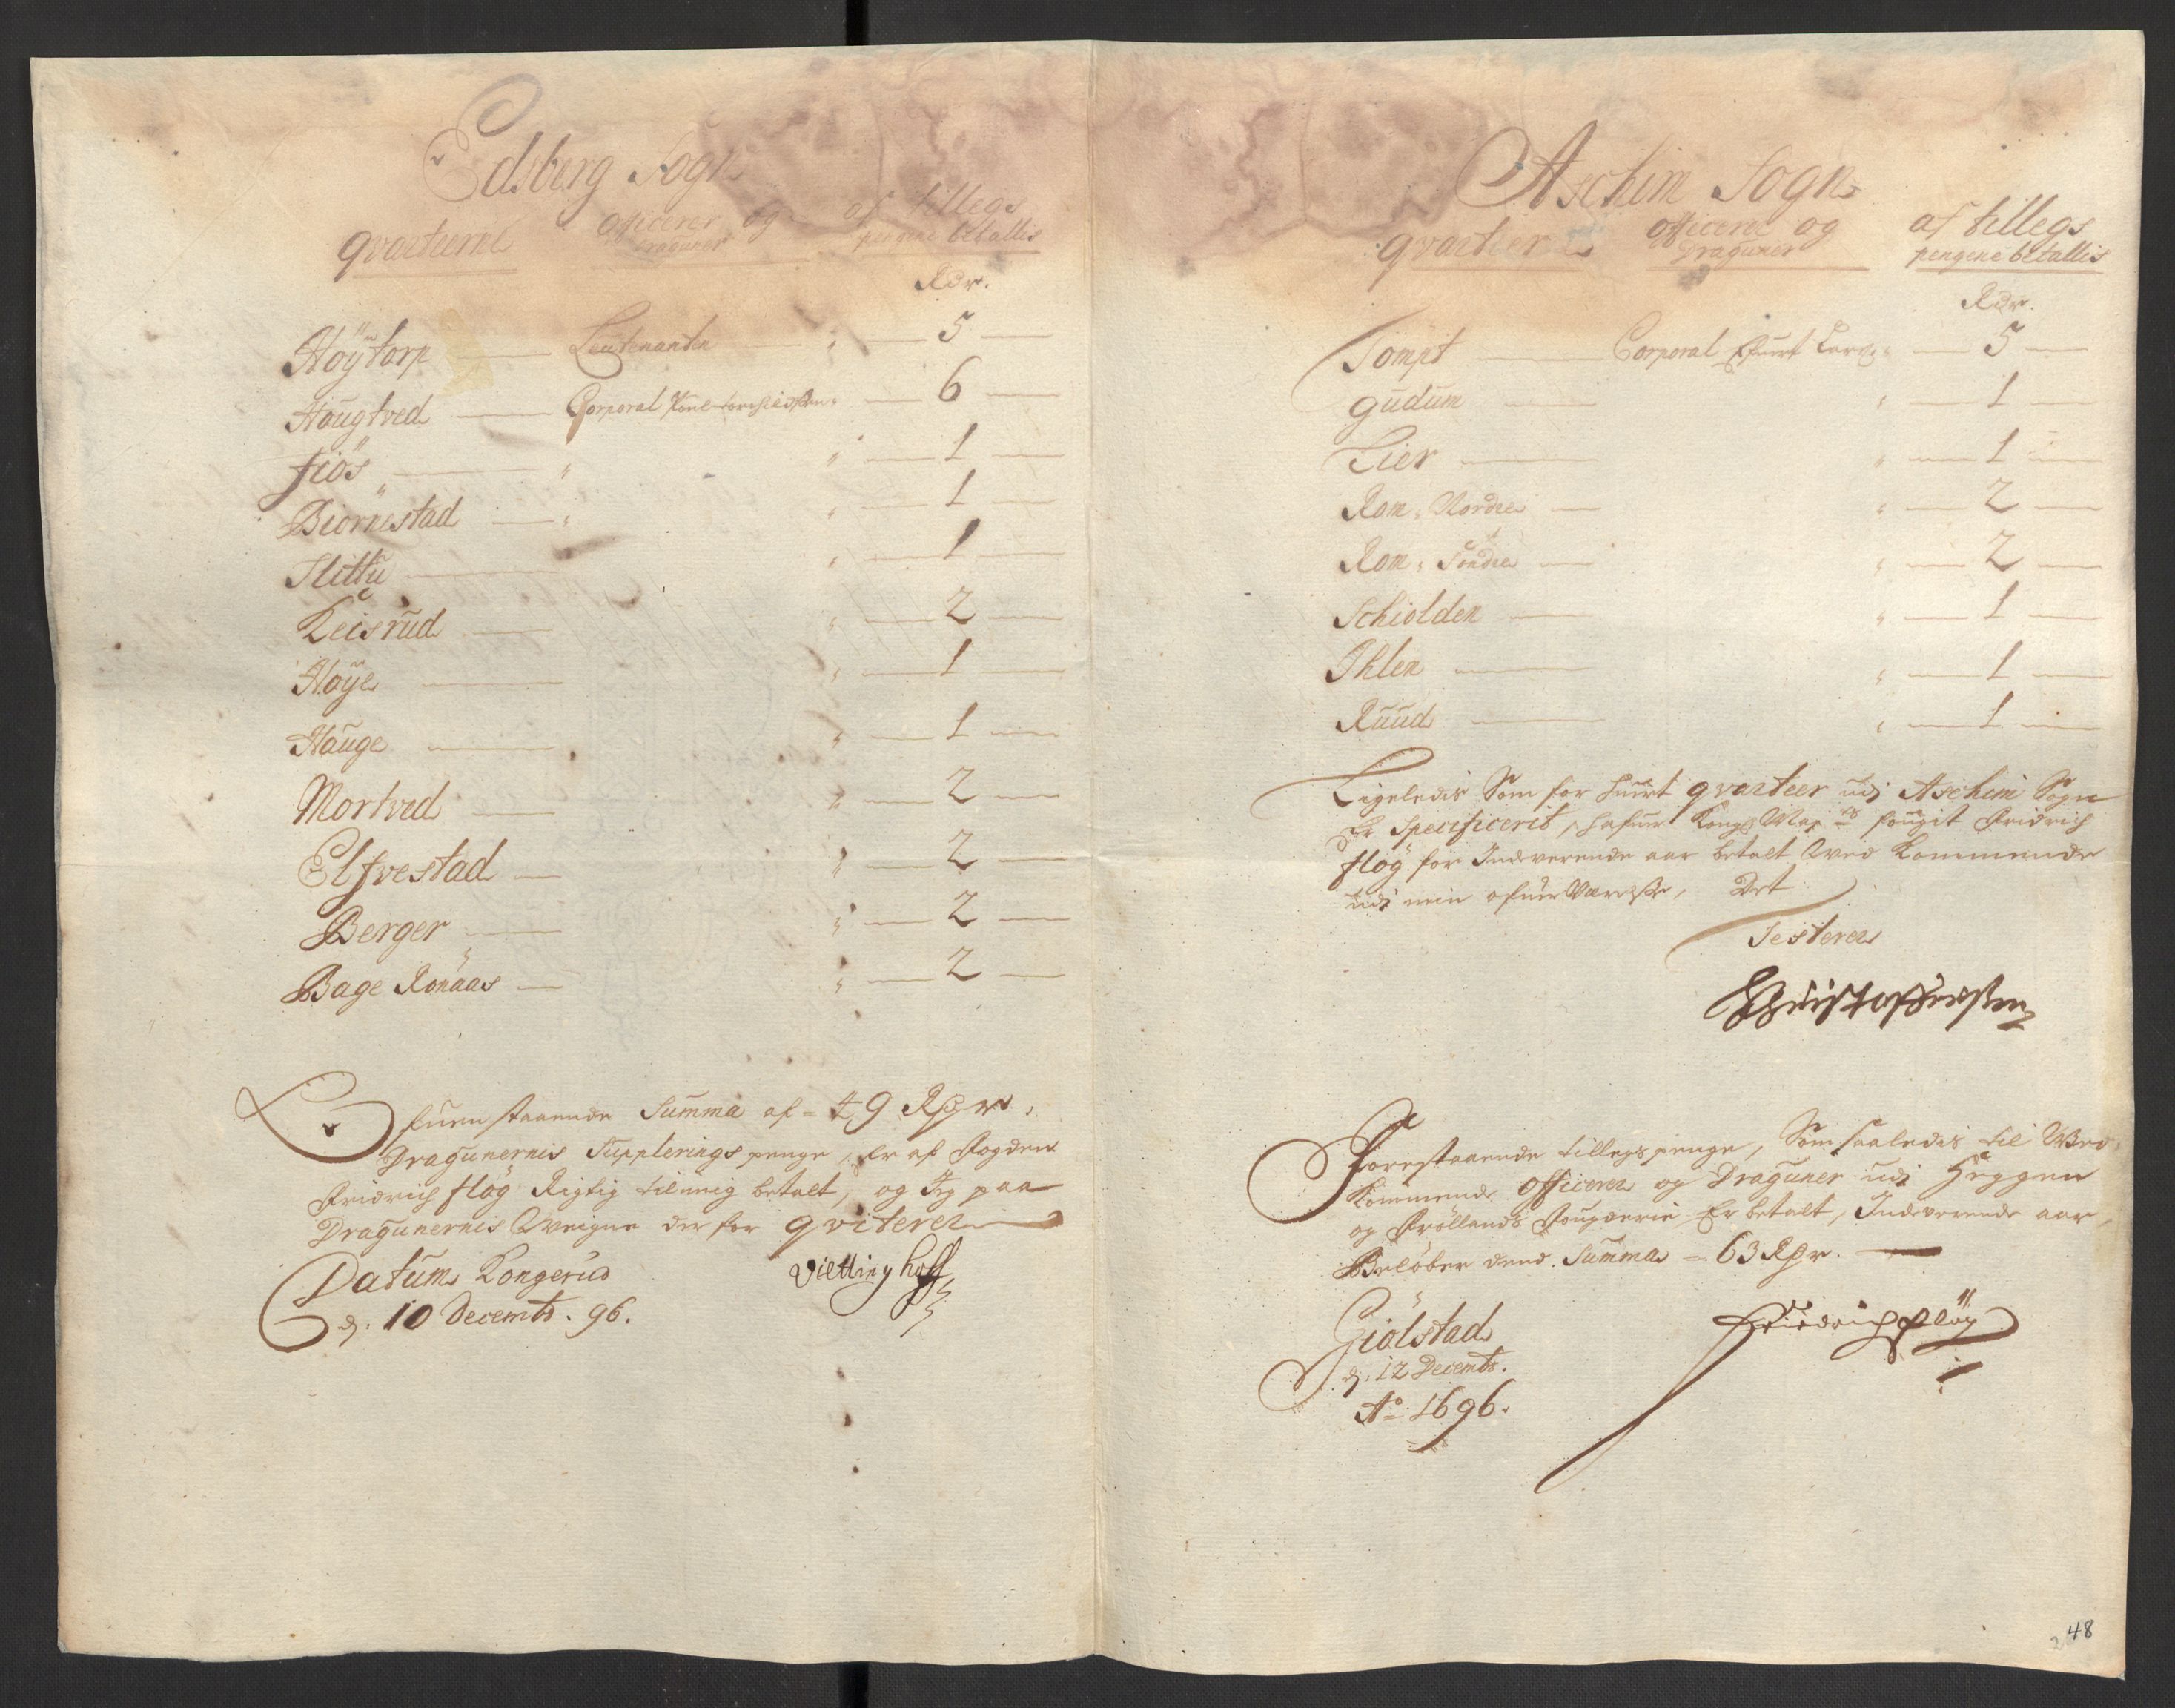 Edsberg Sogn
qvarteerne officerer og Dragunner af tillegs pengene betallis
Rdr.
Höytorp Leutenanten 5
Hougtved Corporal 6
fiös 1
Biörnestad 1
Slittu 1
Keisrud 2
Høye 1
Hauge 1
Mortved 2
Elfvestad 2
Berger 2
Bage Rönaas 2
Ofuenstaaende Summa af = 49 Rdr.
Dragunernis Supplerings penge, Er af Fogden
Fridrich flög Rigtig til mig betalt, og Jeg paa
Dragunernis Vweigne der for qviterer
Datum Kongerud
d. 10 Decembr. 96.
Viettinghoff
Aschim Sogn
qvarteerne officerer og Dragunner af tillegs pengene betallis
Rdr.
Tompt Corporal 5
gudum 1
Lier 1
Rom Nordre 2
Rom Söndre 2
Schiolden 1
Ihlen 1
Ruud 1
Ligeledis Som for huert qvarteer udj Aschim Sogn
Er Specificerit, hafuer Kongl. May.ts fougit Fridrich
flög for Indeverende aar betalt Wed Kommende
udj min ofuerVærelse, Det
Testerer
Christoffersen
Forestaaende tillegs penge, Som saaledis til Wed-
kommende officerer og Draguner udj Heggen
og Fröllands fougderie Er betalt, Indeverende aar,
Belöber dend Summa = 63 Rdr.
Giölstad
d. 12 Decembr.
Ao 1696.
Friedrich flög
48